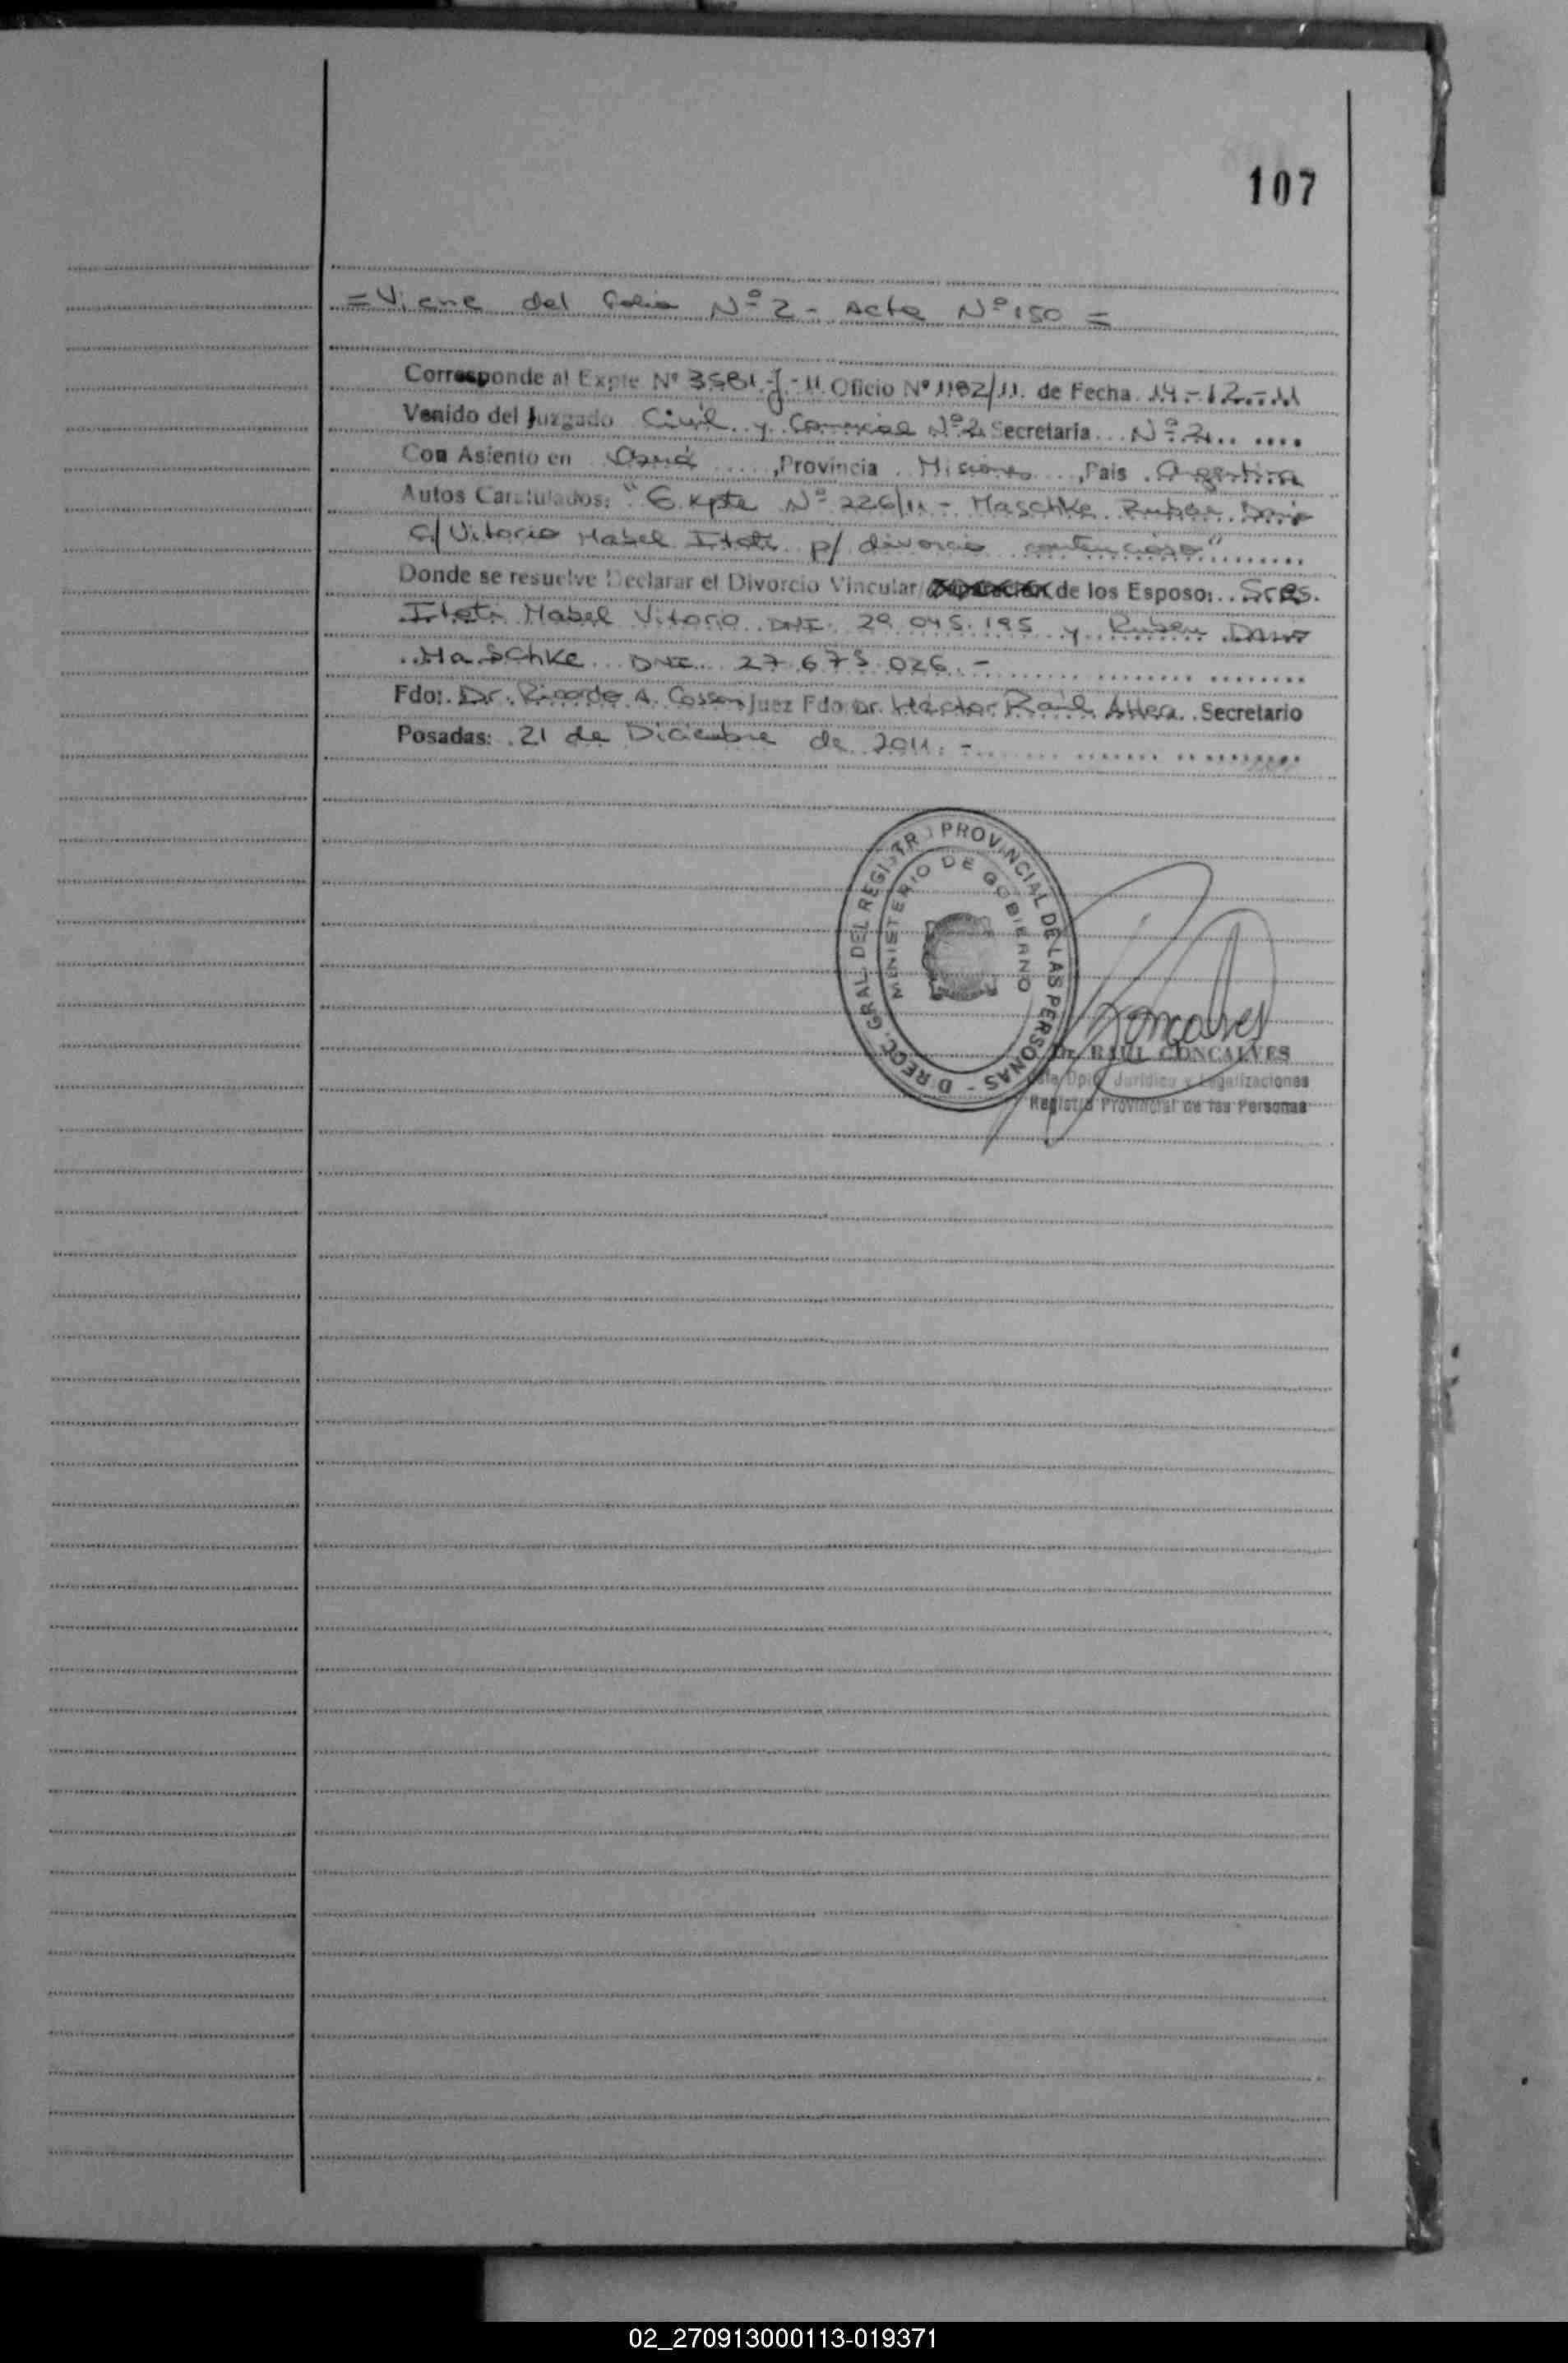 107
= Viene del Folio Nº 2 - Acta Nº 150 =
Corresponde al Expte Nº 3581-J-11 Oficio Nº 1182/11. de Fecha 14-12-11
Venido del Juzgado Civil y Comercial Nº 2 Secretaria Nº 2
Con Asiento en Oberá, Provincia Misiones, Pais Argentina
Autos Caratulados: "Expte Nº 226/11 - Maschke Ruben Dario
c/ Vitorio Mabel Itatí p/ divorcio contencioso"
Donde se resuelve Declarar el Divorcio Vincular/ de los Esposo: Sres.
Itatí Mabel Vitorio DNI 29.045.195 y Ruben Dario
Maschke DNI 27.675.026.-
Fdo: Dr. Ricardo A. Juez Fdo: Dr. Héctor Raúl Secretario
Posadas: 21 de Diciembre de 2011.-
DIRECC. GRAL. DEL REGISTRO PROVINCIAL DE LAS PERSONAS -
MINISTERIO DE GOBIERNO
Goncalves
Dr. RAUL GONCALVES
Dpto. Jurídico y Legalizaciones
Registro Provincial de las Personas
02_270913000113-019371